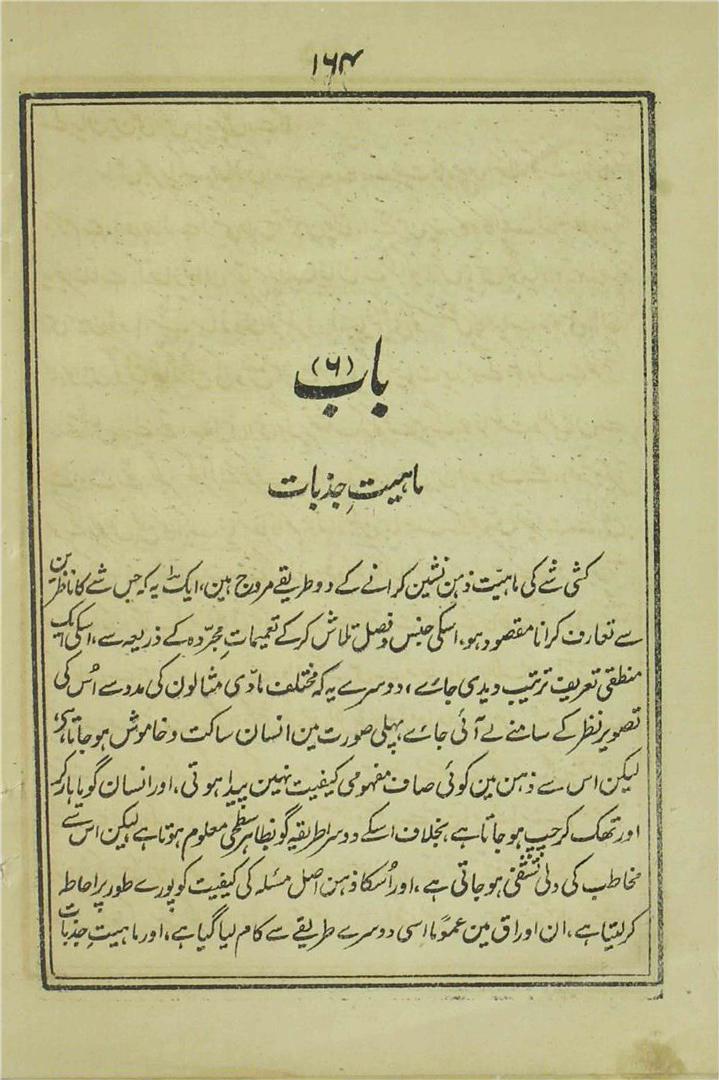 باب (۶)
ماہیتِ جذبات
کسی شے کی ماہیّت ذہن نشین کرانے کے دو طریقے مروج ہین، ایک یہ کہ جس شے کا ناظرین
سے تعارف کرانا مقصود ہو، اسکی جنس و فصل تلاش کر کے تعمیماتِ مجرّدہ کے ذریعہ سے، اسکی ایک
منطقی تعریف ترتیب دیدی جائے، دوسرے یہ کہ مختلف مادّی مثالون کی مدد سے اُس کی
تصویر نظر کے سامنے لے آئی جائے پہلی صورت مین انسان ساکت و خاموش ہو جاتا ہے،
لیکن اس سے ذہن مین کوئی صاف مفہومی کیفیت نہین پیدا ہوتی، اور انسان گویا ہار کر
اور تھک کر چپ ہو جاتا ہے بخلاف اسکے دوسرا طریقہ گو بظاہر سطحی معلوم ہوتا ہے لیکن اس سے
مخاطب کی دلی تشفی ہو جاتی ہے، اور اُسکا ذہن اصل مسئلہ کی کیفیت کو پورے طور پر احاطہ
کر لیتا ہے، ان اوراق مین عموماً اسی دوسرے طریقے سے کام لیا گیا ہے، اور ماہیتِ جذبات